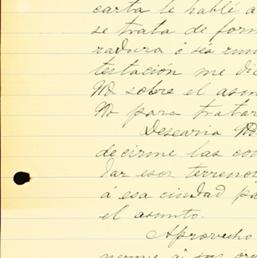 carta le hablé a
se trata de form
radura ó sea rem
testación me di
No sobre el asun
No para tratar
Desearia
decirme las con
dar esos terreno
á esa ciudad pa
el asunto.
Aprovecho
nerme á sus ord